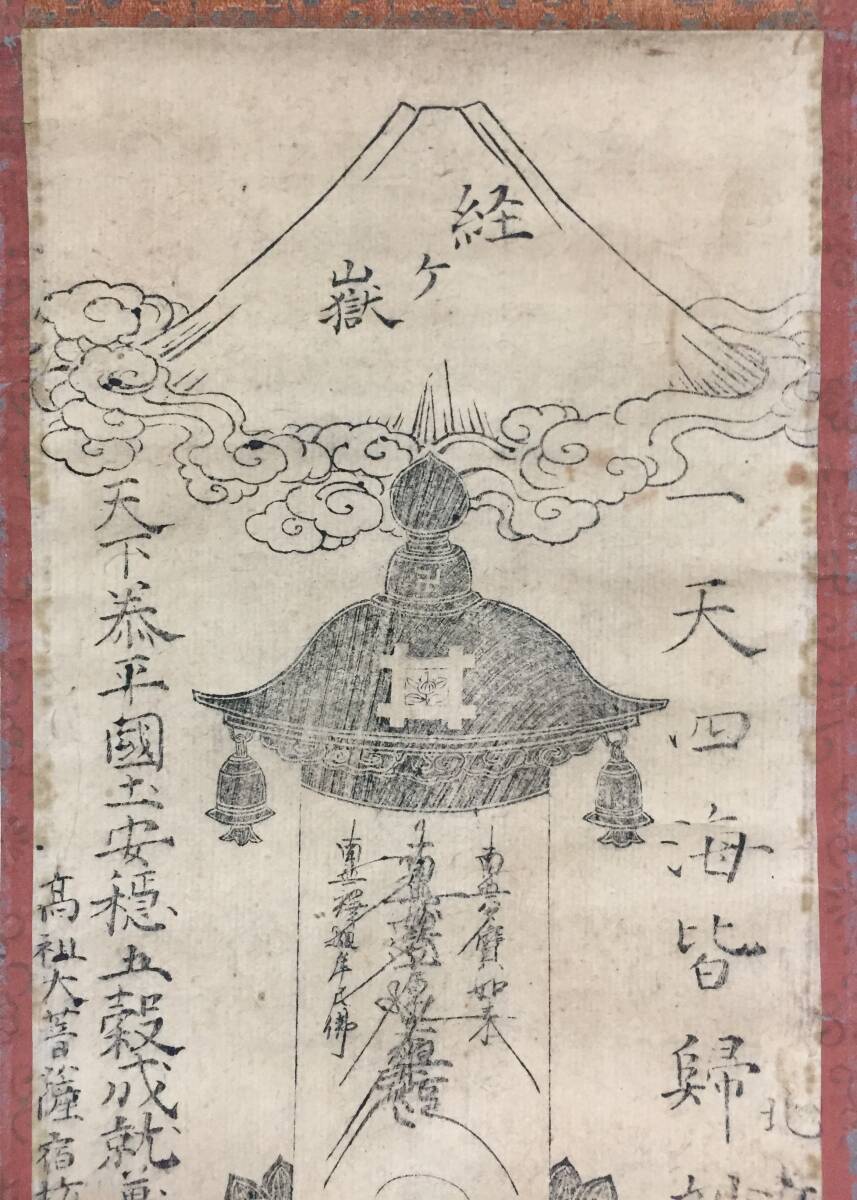 経
ケ
嶽
一天四海皆歸
北
南無多寶如来
南無妙法蓮華經
南無釋迦牟尼佛
卍
天下泰平國土安穏五穀成就萬
高祖大菩薩宿坊